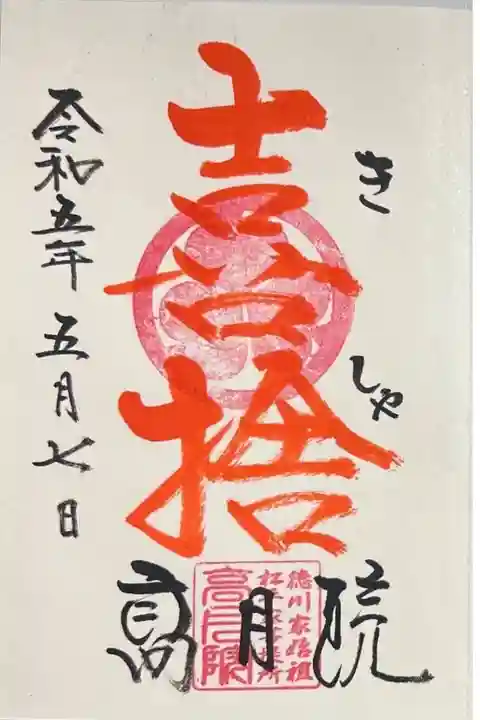 きしゃ
喜捨
令和五年五月七日
高月院
徳川家始祖
松平家墓所
高月院